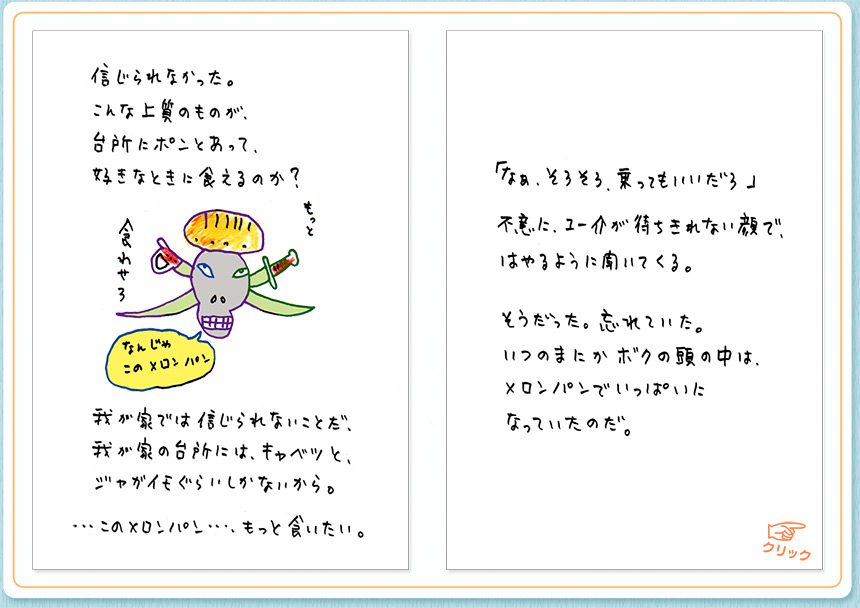 信じられなかった。
こんな上質のものが、
台所にポンとあって、
好きなときに食えるのか?
もっと
食わせろ
なんじゃ
このメロンパン
我が家では信じられないことだ、
我が家の台所には、キャベツと、
ジャガイモぐらいしかないから。
…このメロンパン…、もっと食いたい。
「なぁ、そろそろ、乗ってもいいだろ」
不意に、ユー介が待ちきれない顔で、
はやるように聞いてくる。
そうだった。忘れていた。
いつのまにかボクの頭の中は、
メロンパンでいっぱいに
なっていたのだ。
クリック